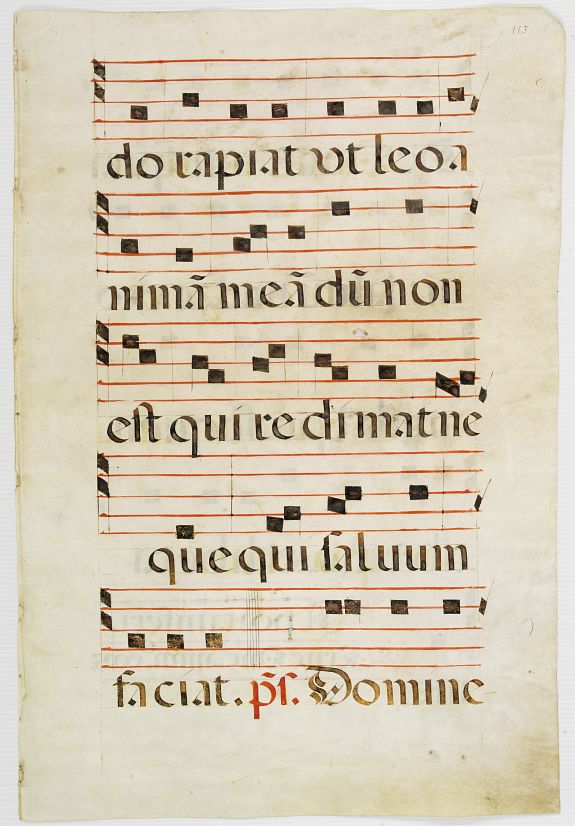 113
do rapiat vt leo a
nimā meā dū non
est qui re di mat ne
que qui saluum
faciat. ps. Domine